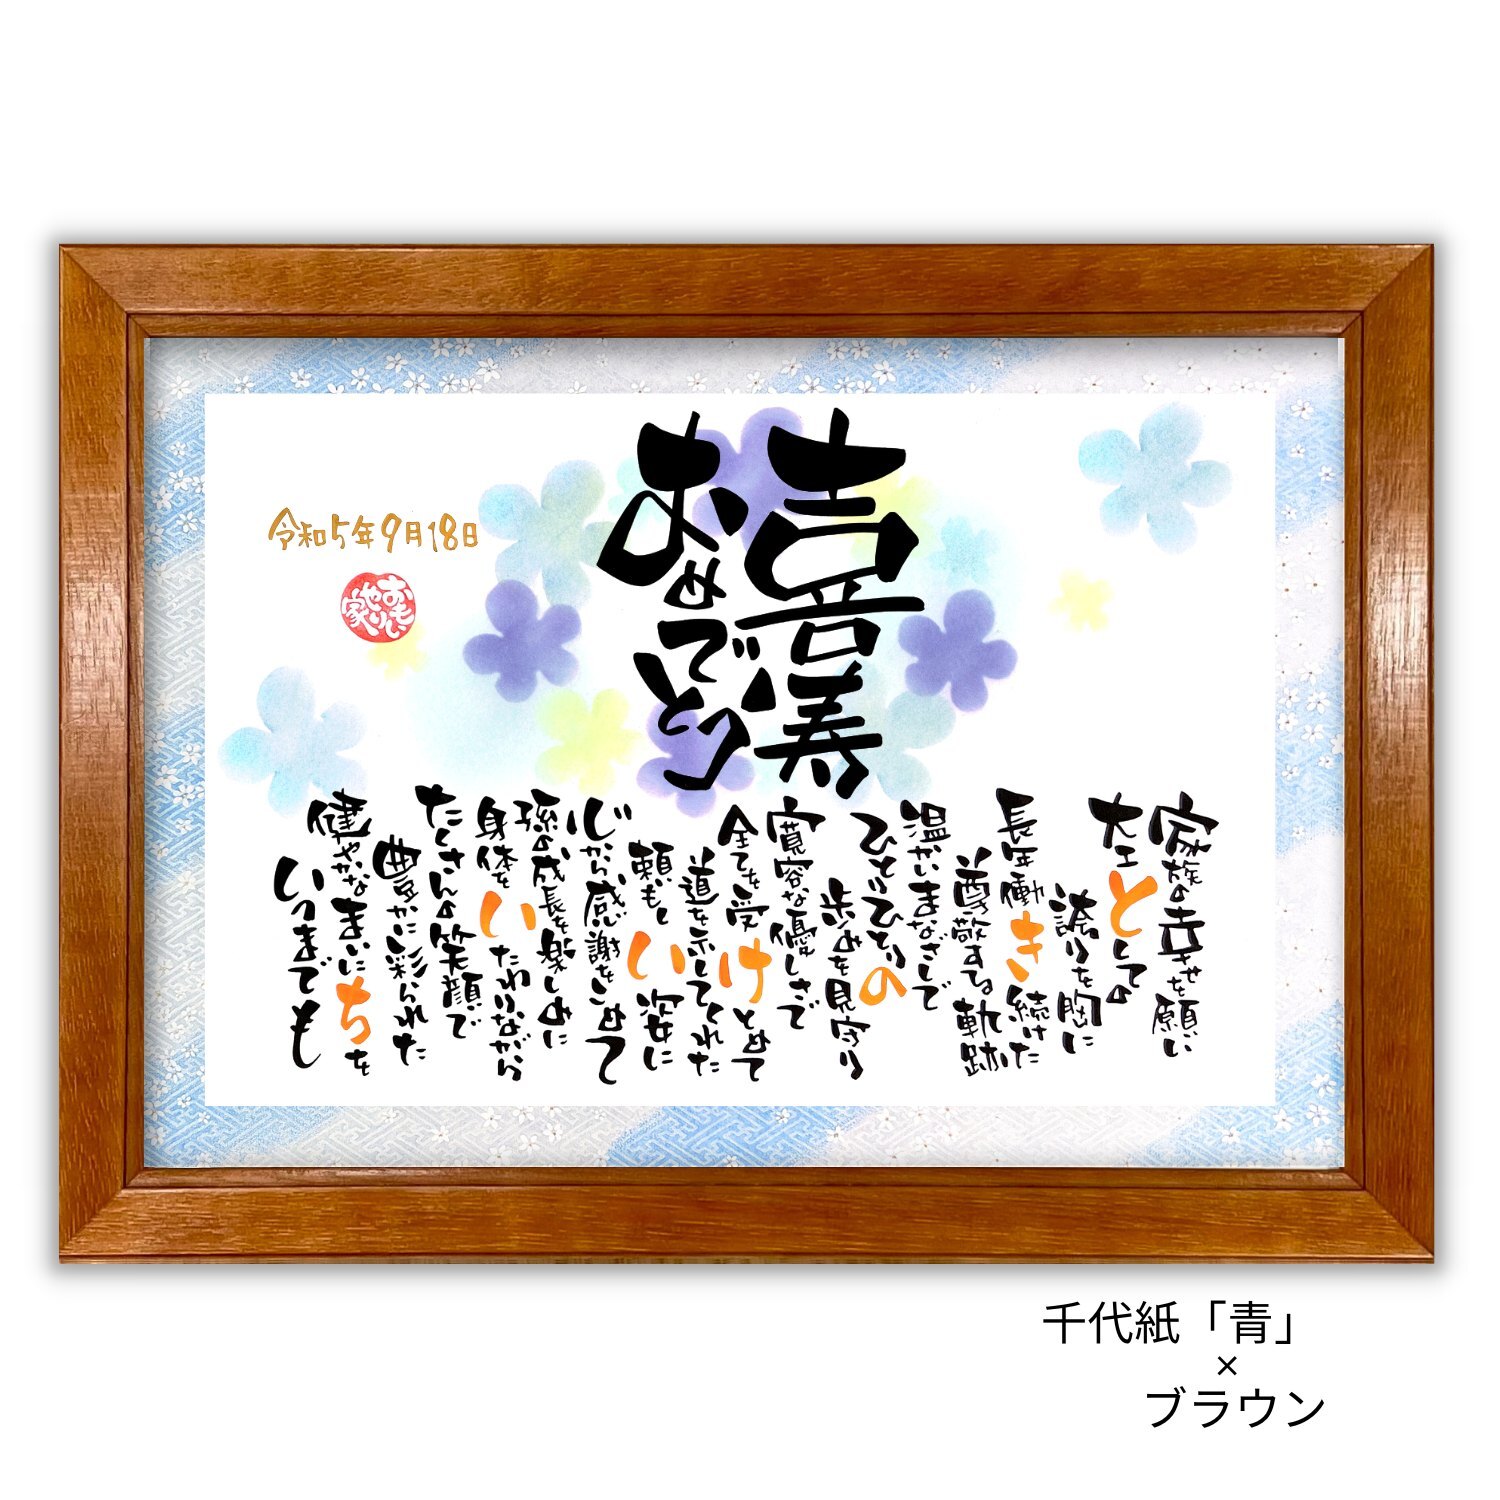 喜寿
おめでとう
令和5年9月18日
おもいやり家
家族の幸せを願い
大工としての
誇りを胸に
長年働き続けた
尊敬する軌跡
温かいまなざしで
ひとりひとりの
歩みを見守り
寛容な優しさで
全てを受けとめて
道を示してくれた
頼もしい姿に
心から感謝をこめて
孫の成長を楽しみに
身体をいたわりながら
たくさんの笑顔で
豊かに彩られた
健やかなまいにちを
いつまでも
千代紙「青」
×
ブラウン